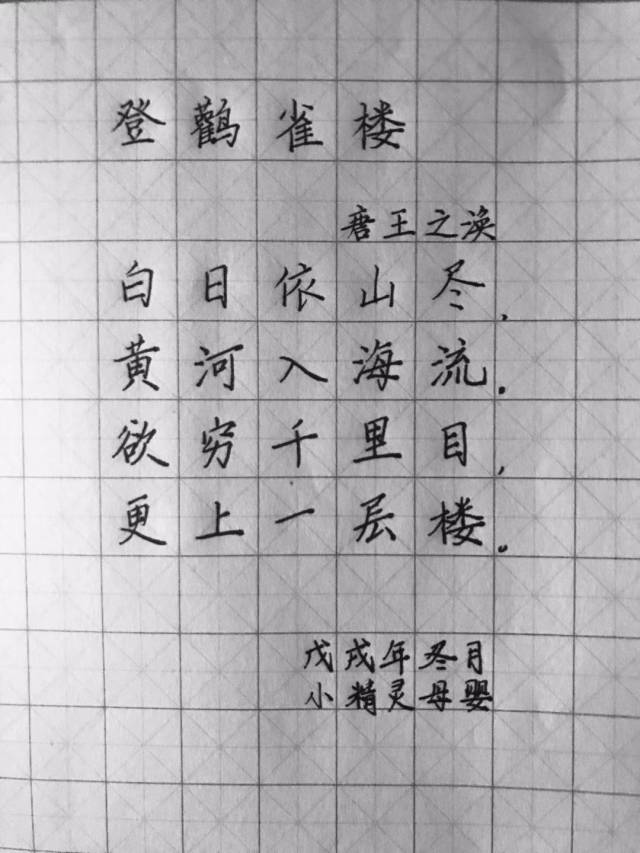 登鸛雀楼
唐王之涣
白日依山尽,
黄河入海流.
欲穷千里目,
更上一层楼。
戊戌年冬月
小精灵母婴